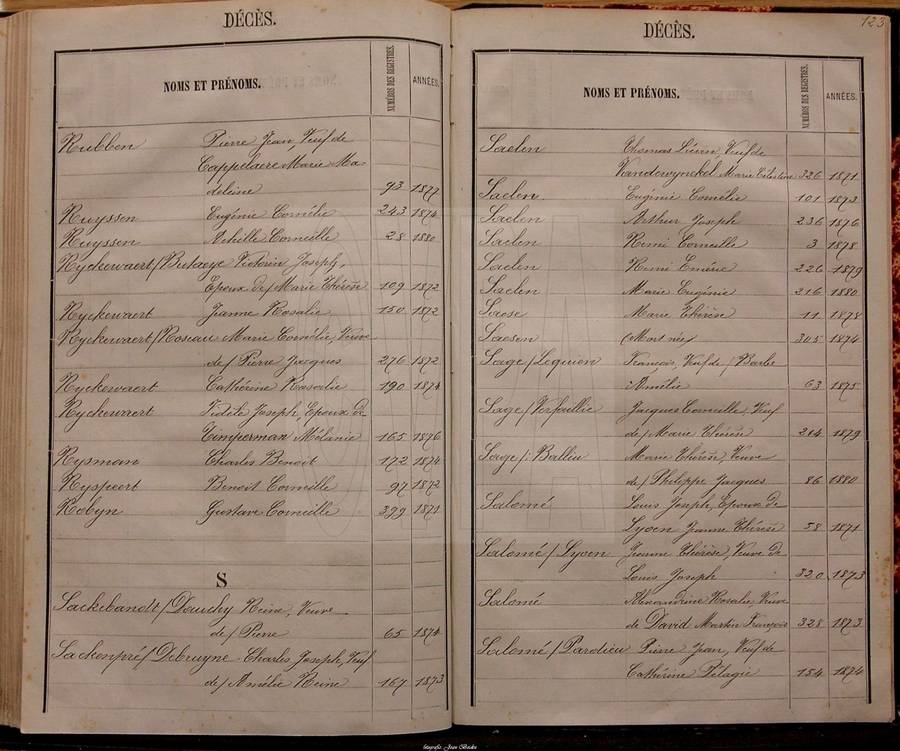 DÉCÈS.
NOMS ET PRÉNOMS. NUMÉROS DES REGISTRES. ANNÉES.
Rubben Pierre Jean, Veuf de
Cappelaere Marie Ma-
deleine 93 1877
Ruyssen Eugénie Cornélie 243 1874
Ruyssen Achille Corneille 28 1880
Ryckewaert/Butaeye Victorin Joseph,
Epoux de/ Marie Thérèse 109 1872
Ryckewaert Jeanne Rosalie 150 1872
Ryckewaert/Rosiau Marie Cornélie, Veuve
de/ Pierre Jacques 276 1872
Ryckewaert Cathérine Rosalie 190 1874
Ryckewaert Fidèle Joseph, Epoux de
Timperman Mélanie 165 1876
Rysman Charles Benoit 172 1874
Ryspeert Benoit Corneille 97 1872
Robyn Gustave Corneille 399 1871
S
Sackebandt/Douchy Reine, Veuve
de/ Pierre 65 1874
Sackenpré/Debruyne Charles, Joseph, Veuf
de/ Amélie Reine 167 1873
123
DÉCÈS.
NOMS ET PRÉNOMS. NUMÉROS DES REGISTRES. ANNÉES.
Saelen Thomas Liévin, Veuf de
Vandewynckel Marie Célestine 326 1871
Saelen Eugénie Cornélie 101 1873
Saelen Arthur Joseph 236 1876
Saelen Remi Corneille 3 1878
Saelen Remi Emérie 226 1879
Saelen Marie Eugénie 216 1880
Saese Marie Thérèse 11 1878
Saesen (Mort né) 305 1874
Sage/Lequien François, Veuf de/ Barbe
Amélie 63 1875
Sage/Versaillie Jacques Corneille, Veuf
de/ Marie Thérèse 214 1879
Sage/Ballieu Marie Thérèse, Veuve
de/ Philippe Jacques 86 1880
Salomé Louis Joseph, Epoux de
Lyoen Jeanne Thérèse 58 1871
Salomé/Lyoen Jeanne Thérèse, Veuve de
Louis Joseph 320 1873
Salomé Alexandrine Rosalie, Veuve
de David Martin François 328 1873
Salomé/Pardieu Pierre Jean, Veuf de
Cathérine Pélagie 154 1874